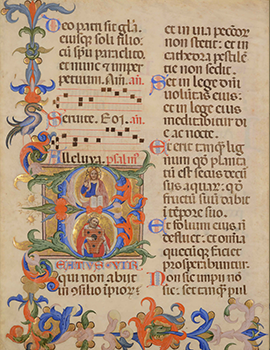 Deo patri sit glā.
eiusq̄ soli filio
cū spū paraclito
et nunc & imper
petuum. Am̄. an̄
Seruite. Eoi. an̄
Alleluya. psalmꝰ
B
EATUS VIR
qui non abiit
in ꝯsilio ipior̄
et in uia peccator
non stetit: et in
cathedra pestilē
tie non sedit.
Set in lege dn̄i
uoluntas eius:
et in lege eius
meditabitur di
e ac nocte.
Et erit tanq̄ lig
num qđ plantā
tū est secus decur
sus aquar: qđ
fructū suū dabit
ī tēpore suo.
Et folium eius n̄
defluet: et omīa
quecūq̄ faciet
prosperabuntur.
Non sic impii nō
sic: set tanq̄ pul